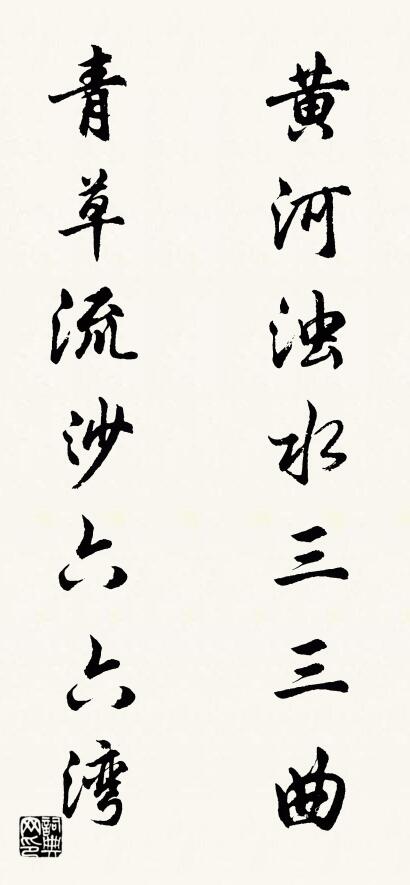 黄河浊水三三曲
青草流沙六六湾
詞典网印